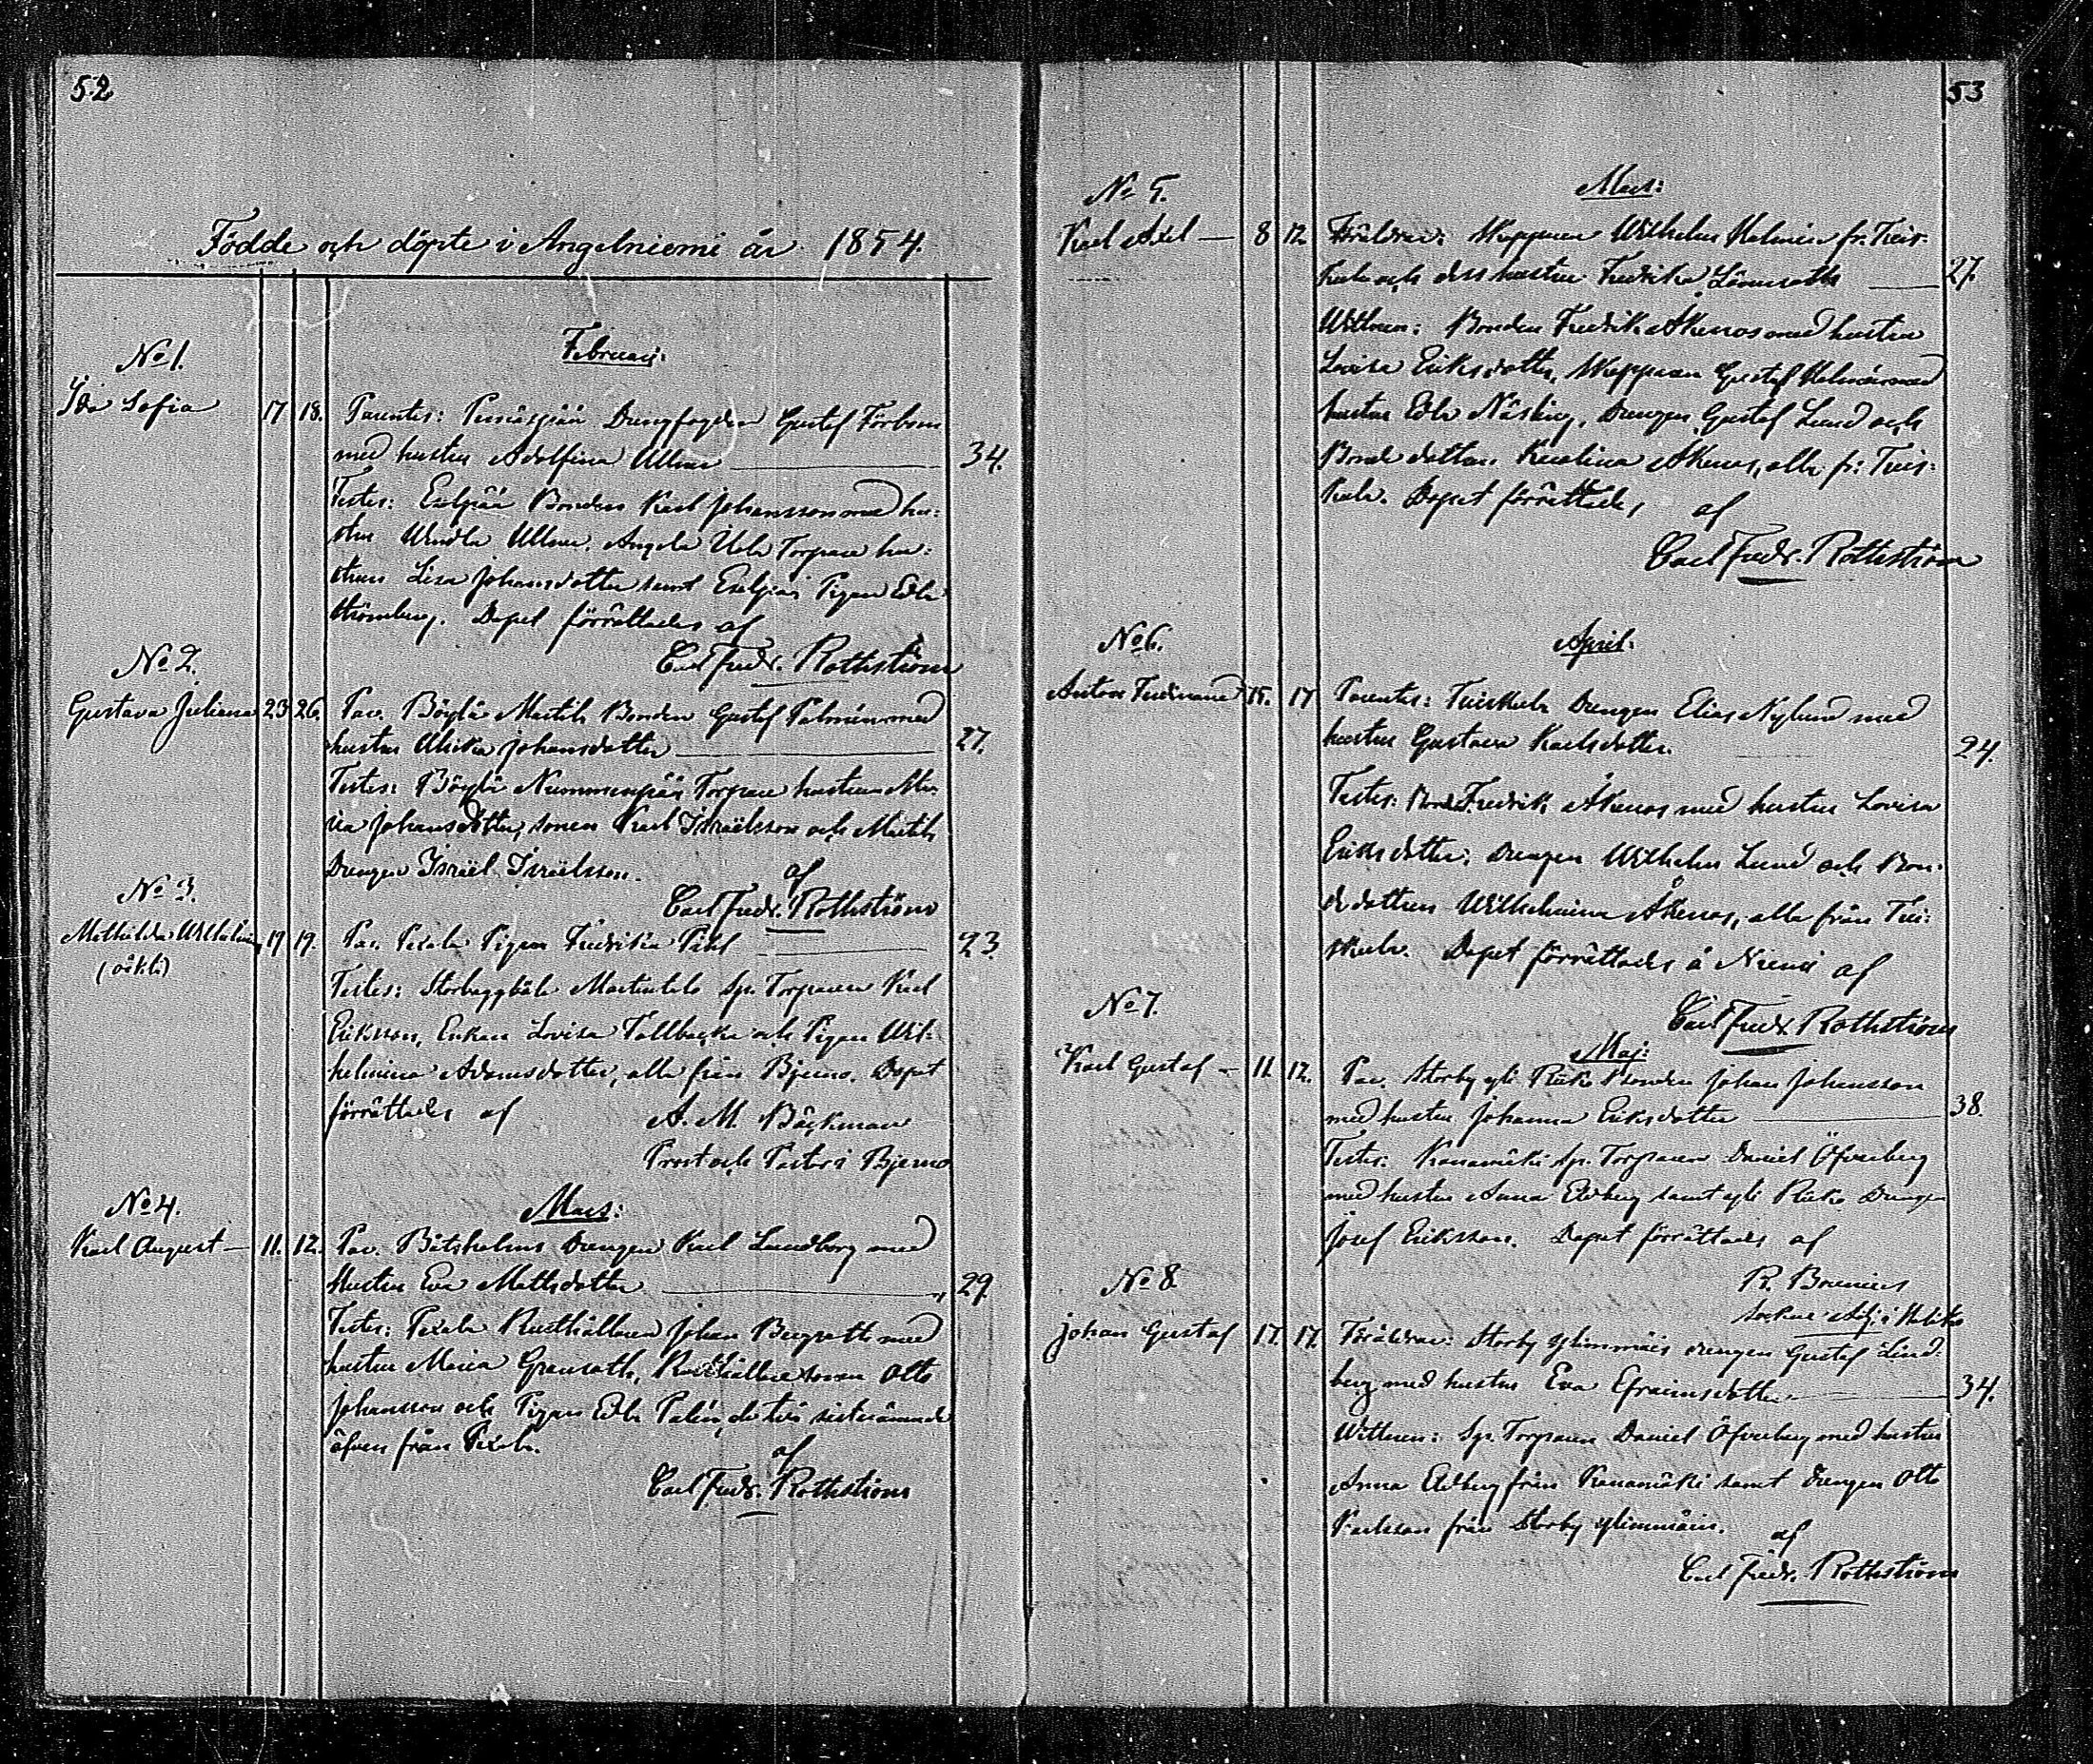 52
Födde och döpte i Angelniemi år 1854.
Februari:
No 1.
Ida Sofia 17 18. Parentes: Drengfogden Gustaf Förbom
med hustru Adolfina Ullner 34.
Testes: Bonden Karl Johansson med hu-
stru Wendla Ullner. Angela Torpare hu-
strun Lisa Johansdotter samt Pigan Edla
Strömberg. Dopet förrättades af
Carl Fredr. Rothström
No 2.
Gustava Juliana 23 26. Par. Böylä Mattila Bonden Gustaf Palmén med
hustru Ulrika Johansdotter 27.
Testes: Böylä Nummenpää Torpare hustrun Ma-
ria Johansdotter, sonen Karl Israëlsson och Mattila
Drengen Israël Israëlsson. af
Carl Fredr. Rothström
No 3.
Mathilda Wilhelmina 19 19. Par. Pexala Pigan Fredrika Pihl 23
(oäkta)
Testes: Sp. Torparen Karl
Eriksson, Enkan Lovisa Tallbacka och Pigan Wil-
helmina Adamsdotter, alla från Bjerno. Dopet
förrättades af A. M. Bäckman
Prost och Pastor i Bjerno
Mars:
No 4.
Karl August 11. 12. Par. Båtsholms Drengen Karl Lundborg med
Hustru Eva Mattsdotter 29.
Testes: Pexala Rusthållaren Johan med
hustru Maria Granroth, Rusthållare sonen Otto
Johansson och Pigan Edla Palén, de två sistnämnde
äfven från Pexala.
af
Carl Fredr. Rothström
53
Mars:
No 5.
Karl Axel 8 12 Föräldrar: Skepparen Wilhelm Helmén fr. Tuis-
kula och dess hustru Fredrika Lönnroth 27.
Wittnen: Bonden Fredrik Åkenas med hustru
Lovisa Eriksdotter, Skepparen Gustaf Helmén med
hustru Edla Näsberg, Drengen Gustaf Lund och
Bonde dottern Karolina Åkenas, alla fr. Tuis-
kula. Dopet förrättades af
Carl Fredr. Rothström
April:
No 6.
Anton Ferdinand 15. 17 Parentes: Tuiskula Drengen Elias Nylund med
hustru Gustava Karlsdotter. 24.
Testes: Bond. Fredrik Åkenas med hustru Lovisa
Eriksdotter, Drengen Wilhelm Lund och Bon-
dedottren Wilhelmina Åkenas, alla från Tui-
skula. Dopet förrättades å Niemi af
Carl Fredr. Rothström
Maj:
No 7.
Karl Gustaf 11. 12. Par. Storby Bonden Johan Johansson
med hustru Johanna Eriksdotter 38.
Testes: Kanamäki sp. Torparen Daniel Öfverberg
med hustru Anna Edberg samt Drengen
Josef Eriksson. Dopet förrättades af
R. Brenner
Sockne Adj. i Haliko
No 8
Johan Gustaf 17. 17. Föräldrar: Storby drengen Gustaf Lind-
berg med hustru Eva Efraimsdotter 34.
Wittnen: Sp. Torparen Daniel Öfverberg med hustru
Anna Edberg från Kanamäki samt drengen Otto
Karlsson från Storby
af
Carl Fredr. Rothström